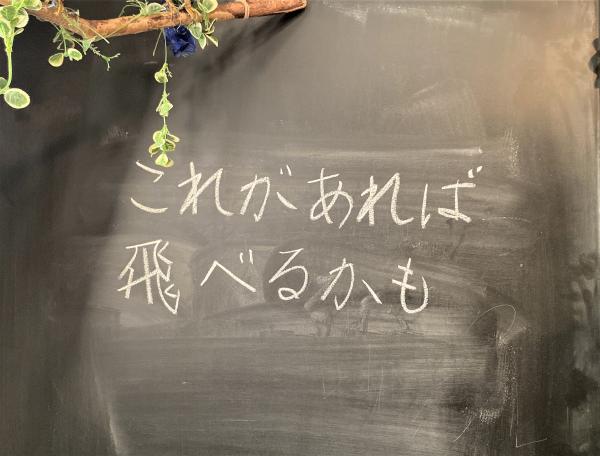 これがあれば
飛べるかも